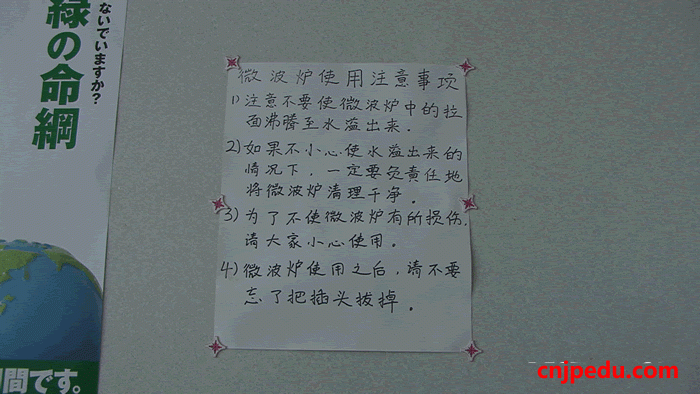 ないでいますか?
緑の命綱
間です。
微波炉使用注意事项
1) 注意不要使微波炉中的拉
面沸腾至水溢出来.
2) 如果不小心使水溢出来的
情况下,一定要负责任地
将微波炉清理干净.
3) 为了不使微波炉有所损伤.
请大家小心使用。
4) 微波炉使用之后,请不要
忘了把插头拔掉.
cnjpedu.com